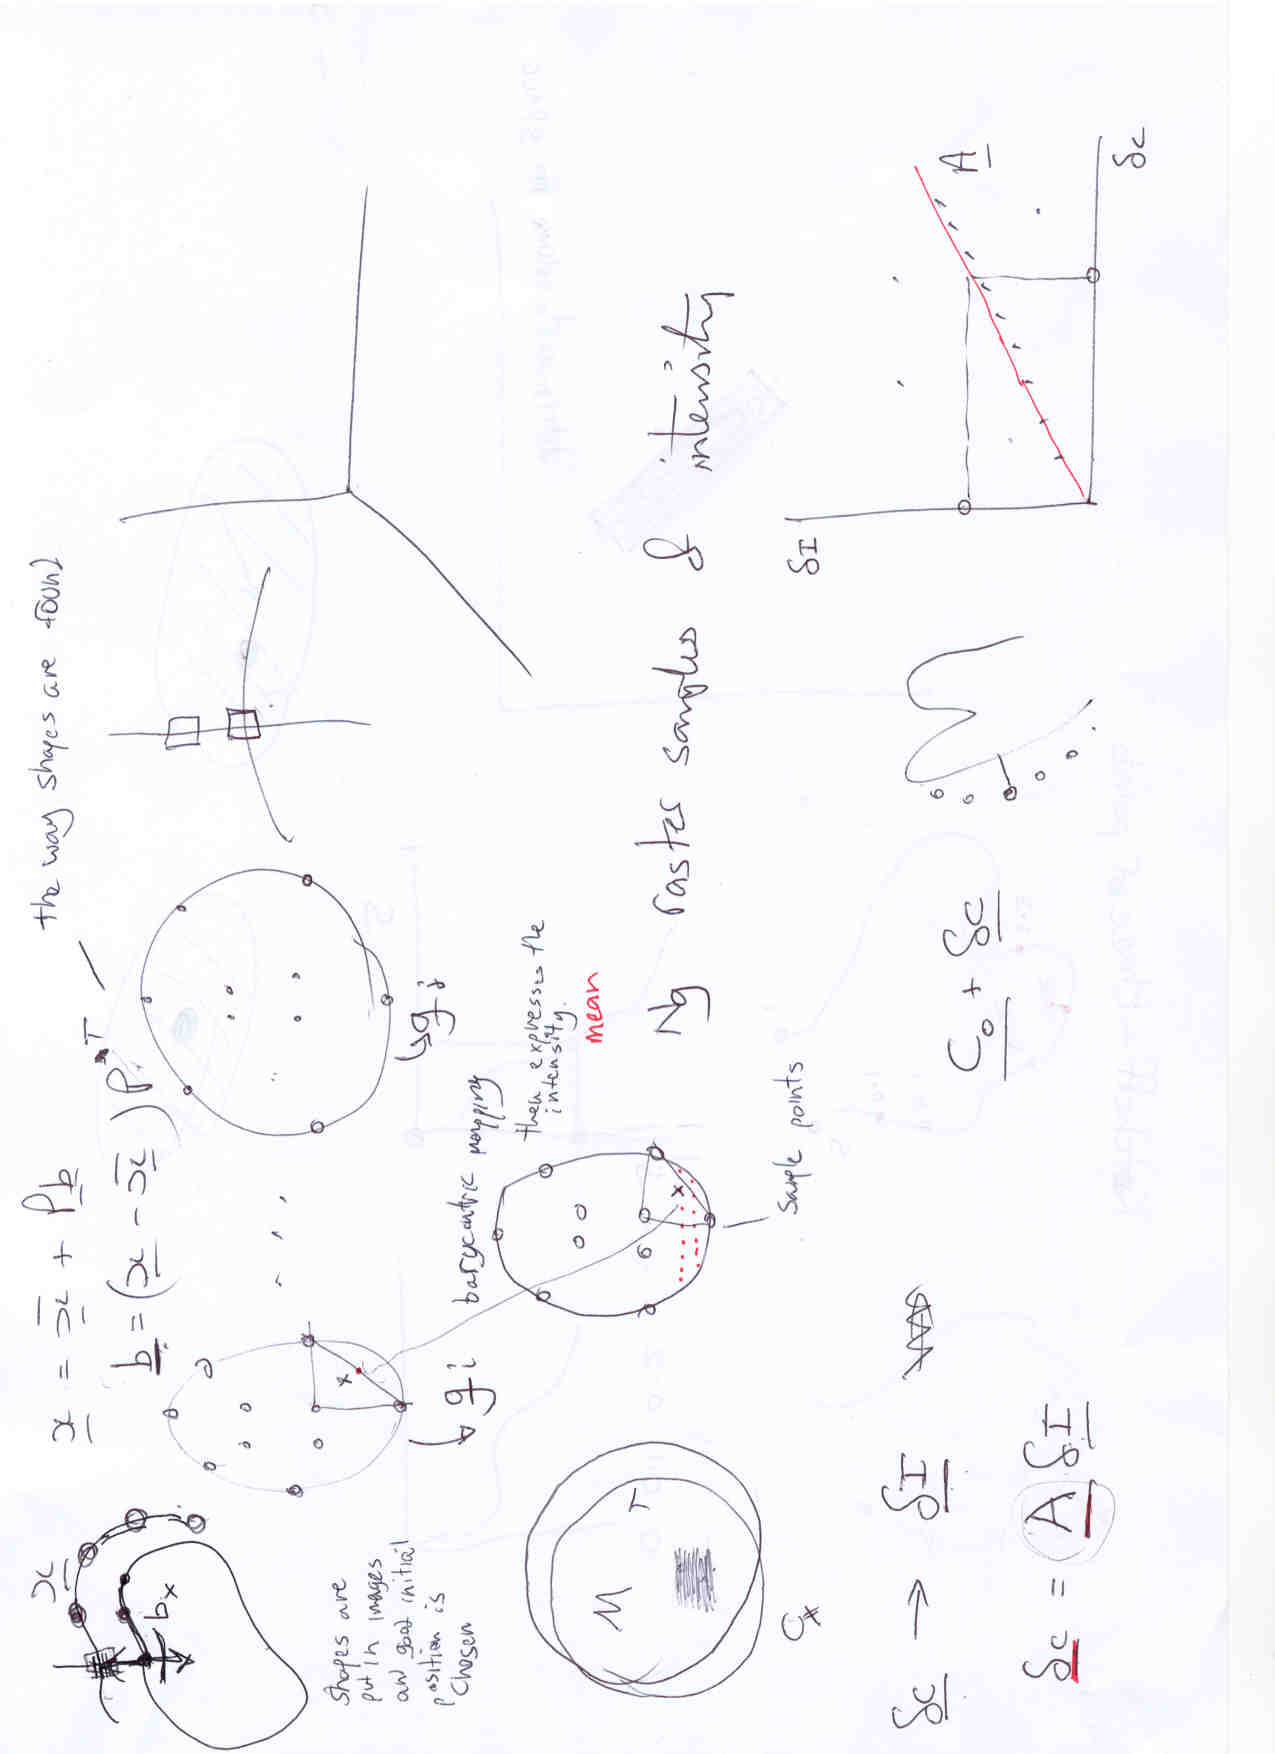 x = x̄ + Pb
b = (x - x̄) Pᵀ
the way shapes are found
x
bx
shapes are
put in images
and goat initial
position is
chosen
gi
gi
barycentric mapping
then expresses the
intensity.
mean
sample points
M
T
Cx
Ng raster samples & intensity
δc → δI
δc = A δI
C₀ + δc
δI
A
δc